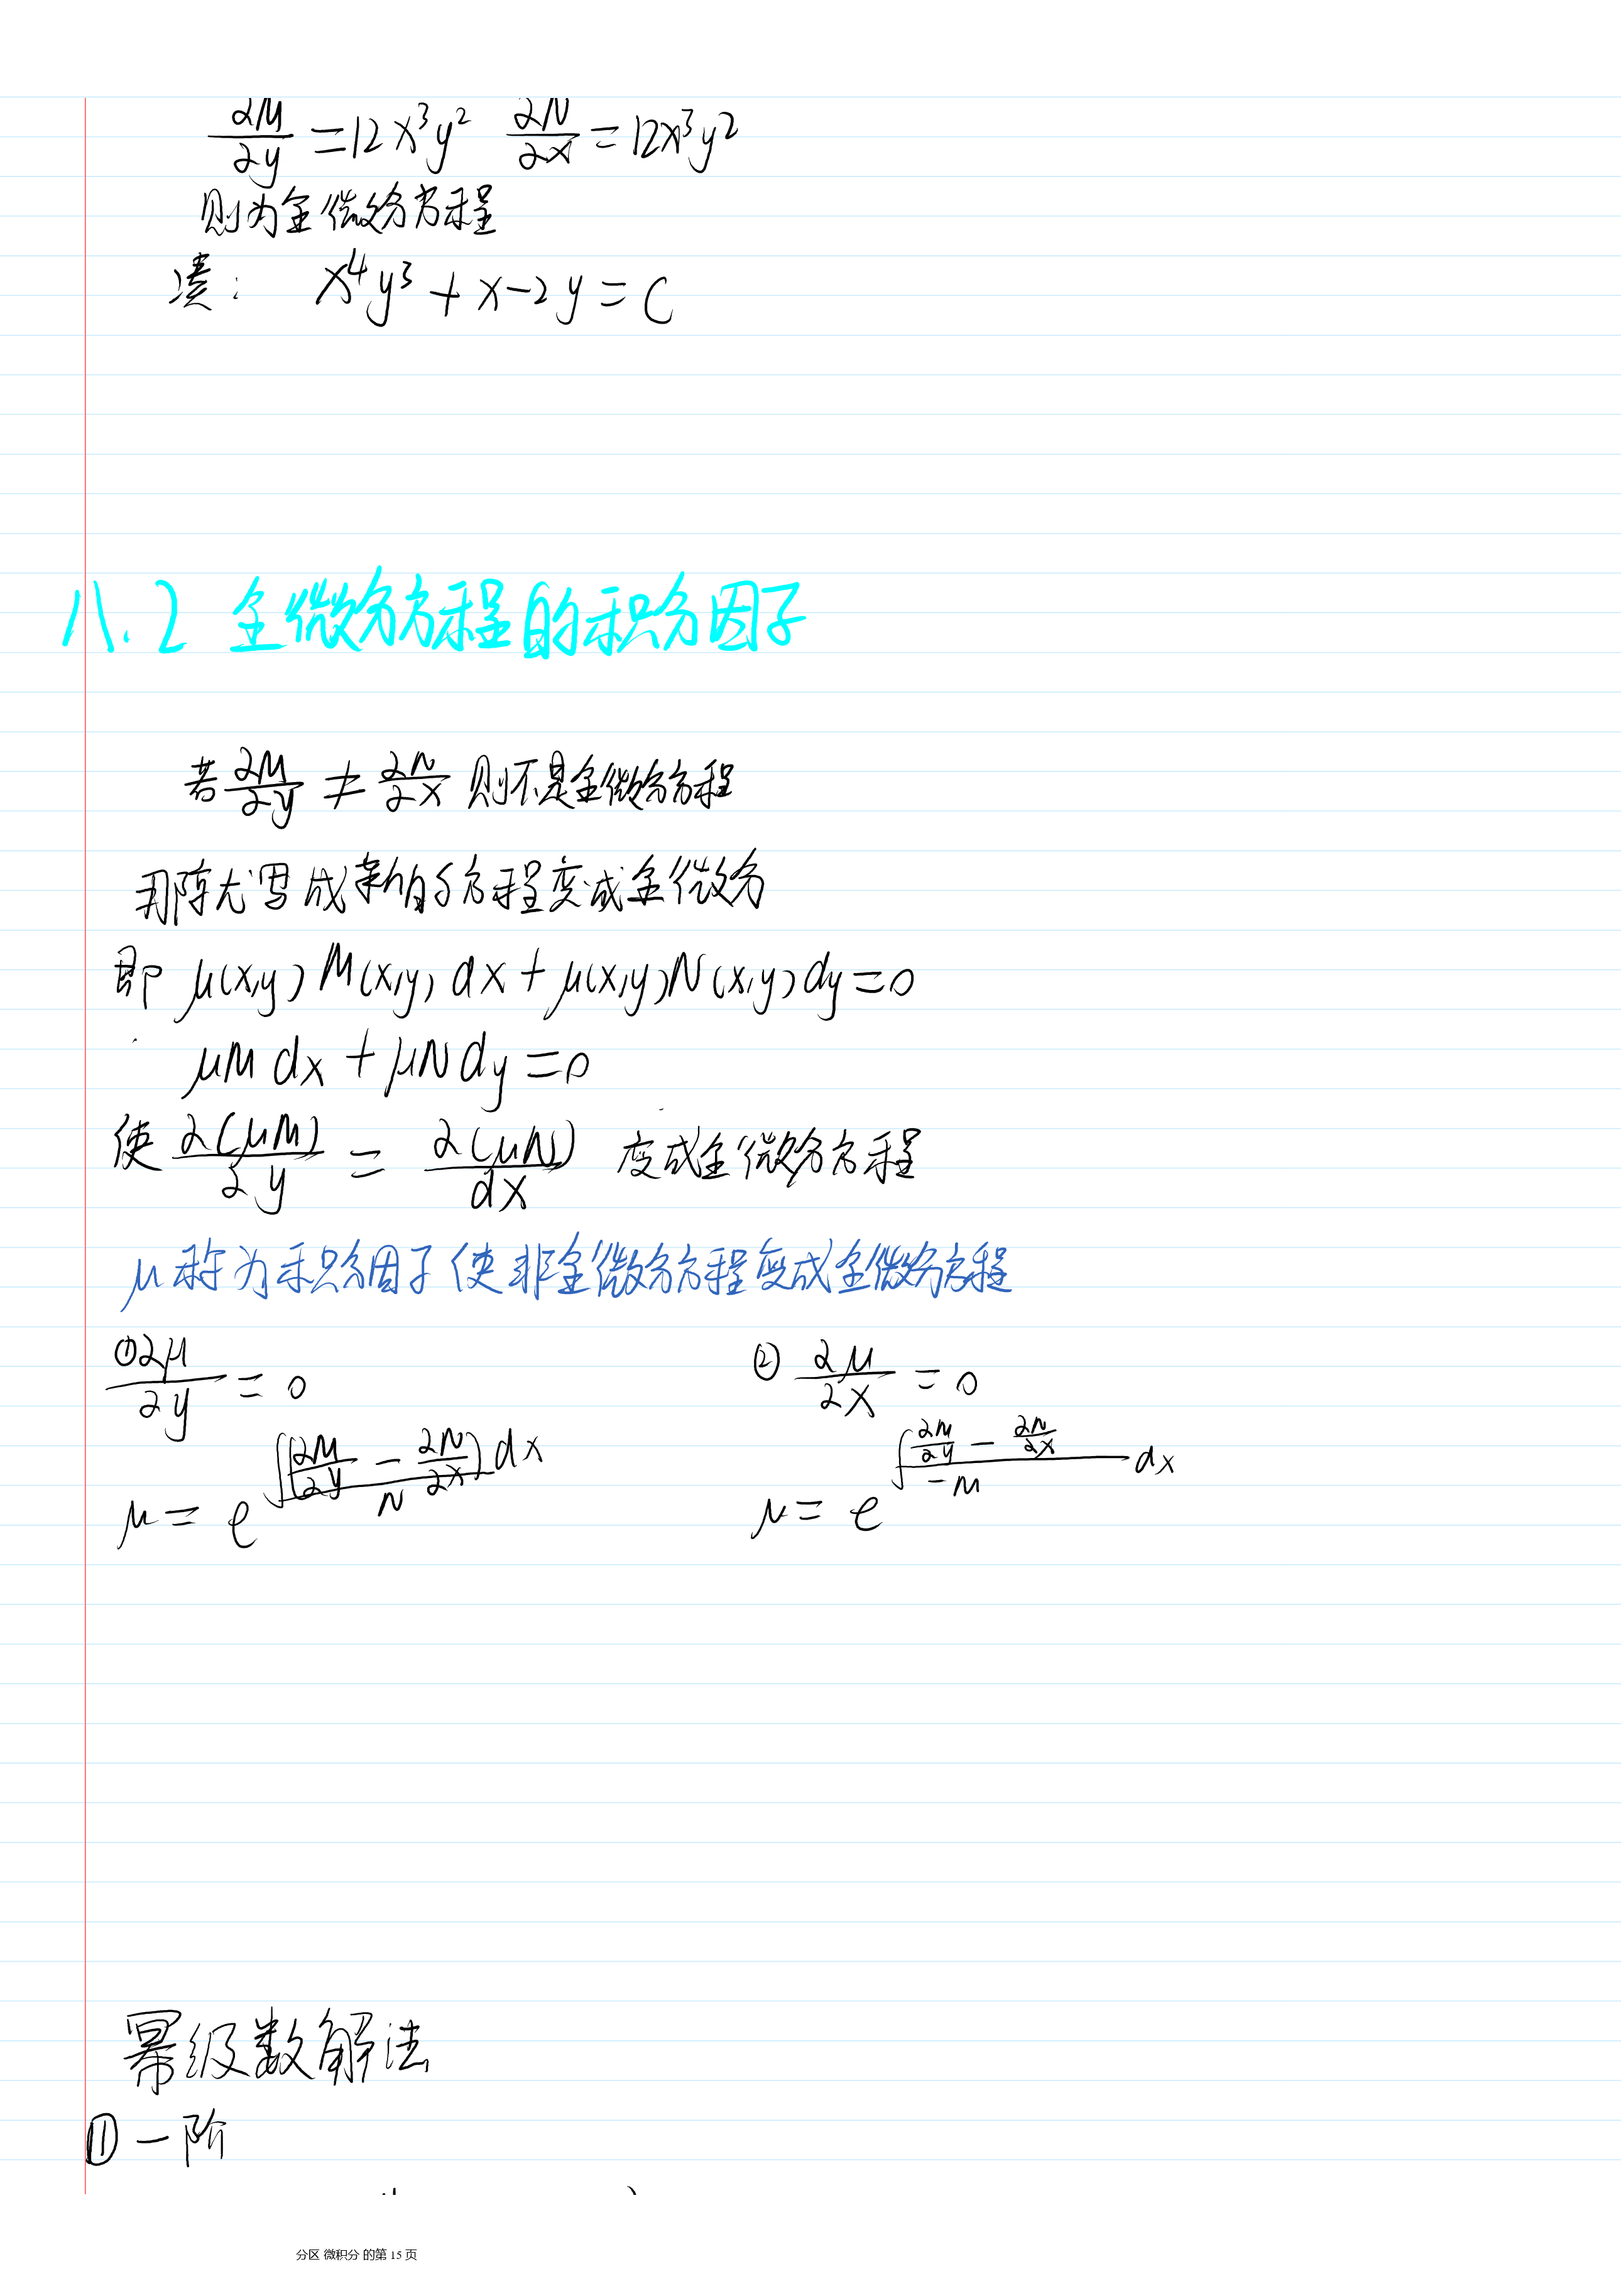 ∂M/∂y = 12x³y² ∂N/∂x = 12x³y²
则为全微分方程
凑: x⁴y³ + x - 2y = C
八.2 全微分方程的积分因子
若 ∂M/∂y ≠ ∂N/∂x 则不是全微分方程
成 方程变成全微分
即 μ(x,y) M(x,y) dx + μ(x,y) N(x,y) dy = 0
μM dx + μN dy = 0
使 ∂(μM)/∂y = ∂(μN)/dx 变成全微分方程
μ称为积分因子使非全微分方程变成全微分方程
① ∂μ/∂y = 0 ② ∂μ/∂x = 0
μ = e^∫(∂M/∂y - ∂N/∂x)/N dx μ = e^∫(∂M/∂y - ∂N/∂x)/-M dx
幂级数解法
① 一阶
分区 微积分 的第 15 页